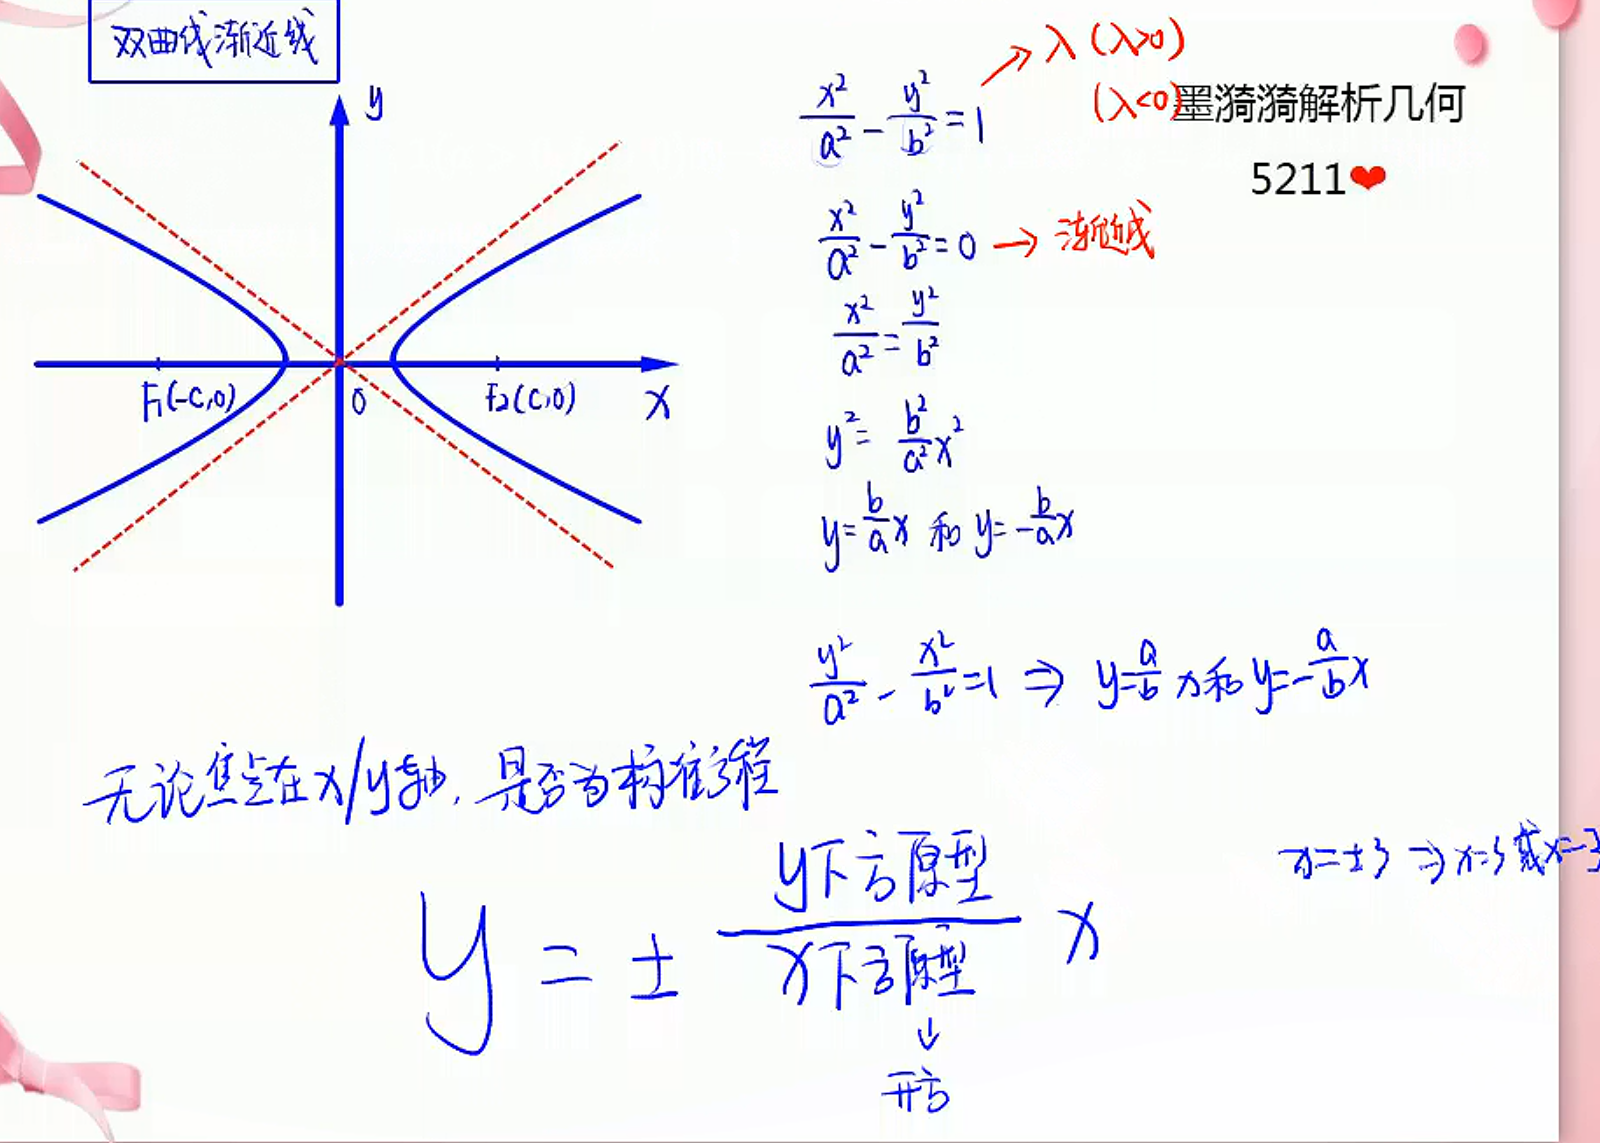 双曲线渐近线
y
F₁(-c,0)
0
F₂(c,0)
x
x²/a² - y²/b² = 1 → λ (λ>0)
(λ<0)
墨漪漪解析几何
5211❤
x²/a² - y²/b² = 0 → 渐近线
x²/a² = y²/b²
y² = b²/a² x²
y = b/a x 和 y = -b/a x
y²/a² - x²/b² = 1 ⇒ y = a/b x 和 y = -a/b x
无论焦点在x/y轴, 是否为标准方程
y = ± y下方原型/x下方原型 x
↓
开方
x = ±3 ⇒ x=3 或 x=-3